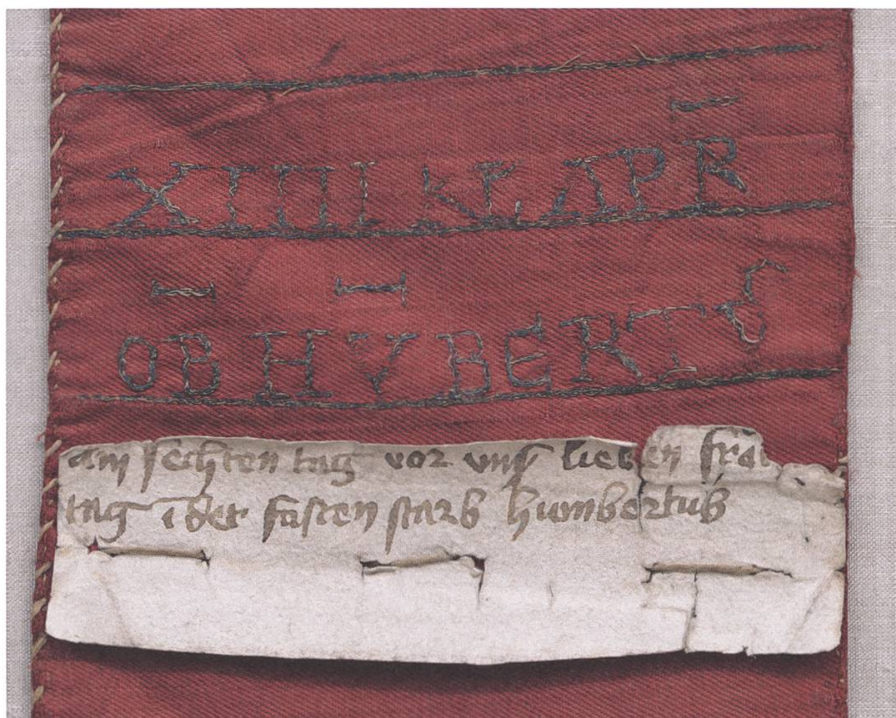 XIIII KL APR̄
OB̄ HV̄BERTꝰ
am sechsten tag vor vnser lieben fraw
tag ī der fasten starb humbertus